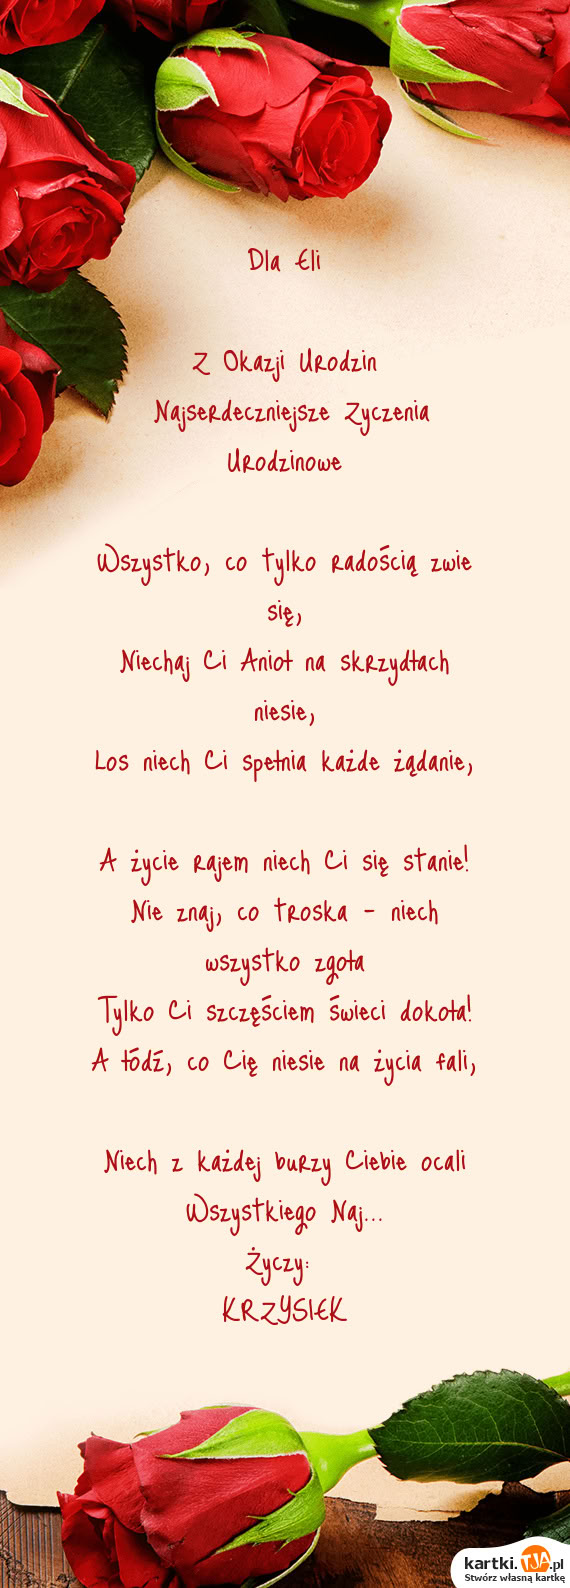 Dla Eli
Z Okazji Urodzin
Najserdeczniejsze Zyczenia
Urodzinowe
Wszystko, co tylko radością zwie
się,
Niechaj Ci Anioł na skrzydłach
niesie,
Los niech Ci spełnia każde żądanie,
A życie rajem niech Ci się stanie!
Nie znaj, co troska - niech
wszystko zgoła
Tylko Ci szczęściem świeci dokoła!
A łódź, co Cię niesie na życia fali,
Niech z każdej burzy Ciebie ocali
Wszystkiego Naj...
Życzy:
KRZYSIEK
kartki.TJA.pl
Stwórz własną kartkę